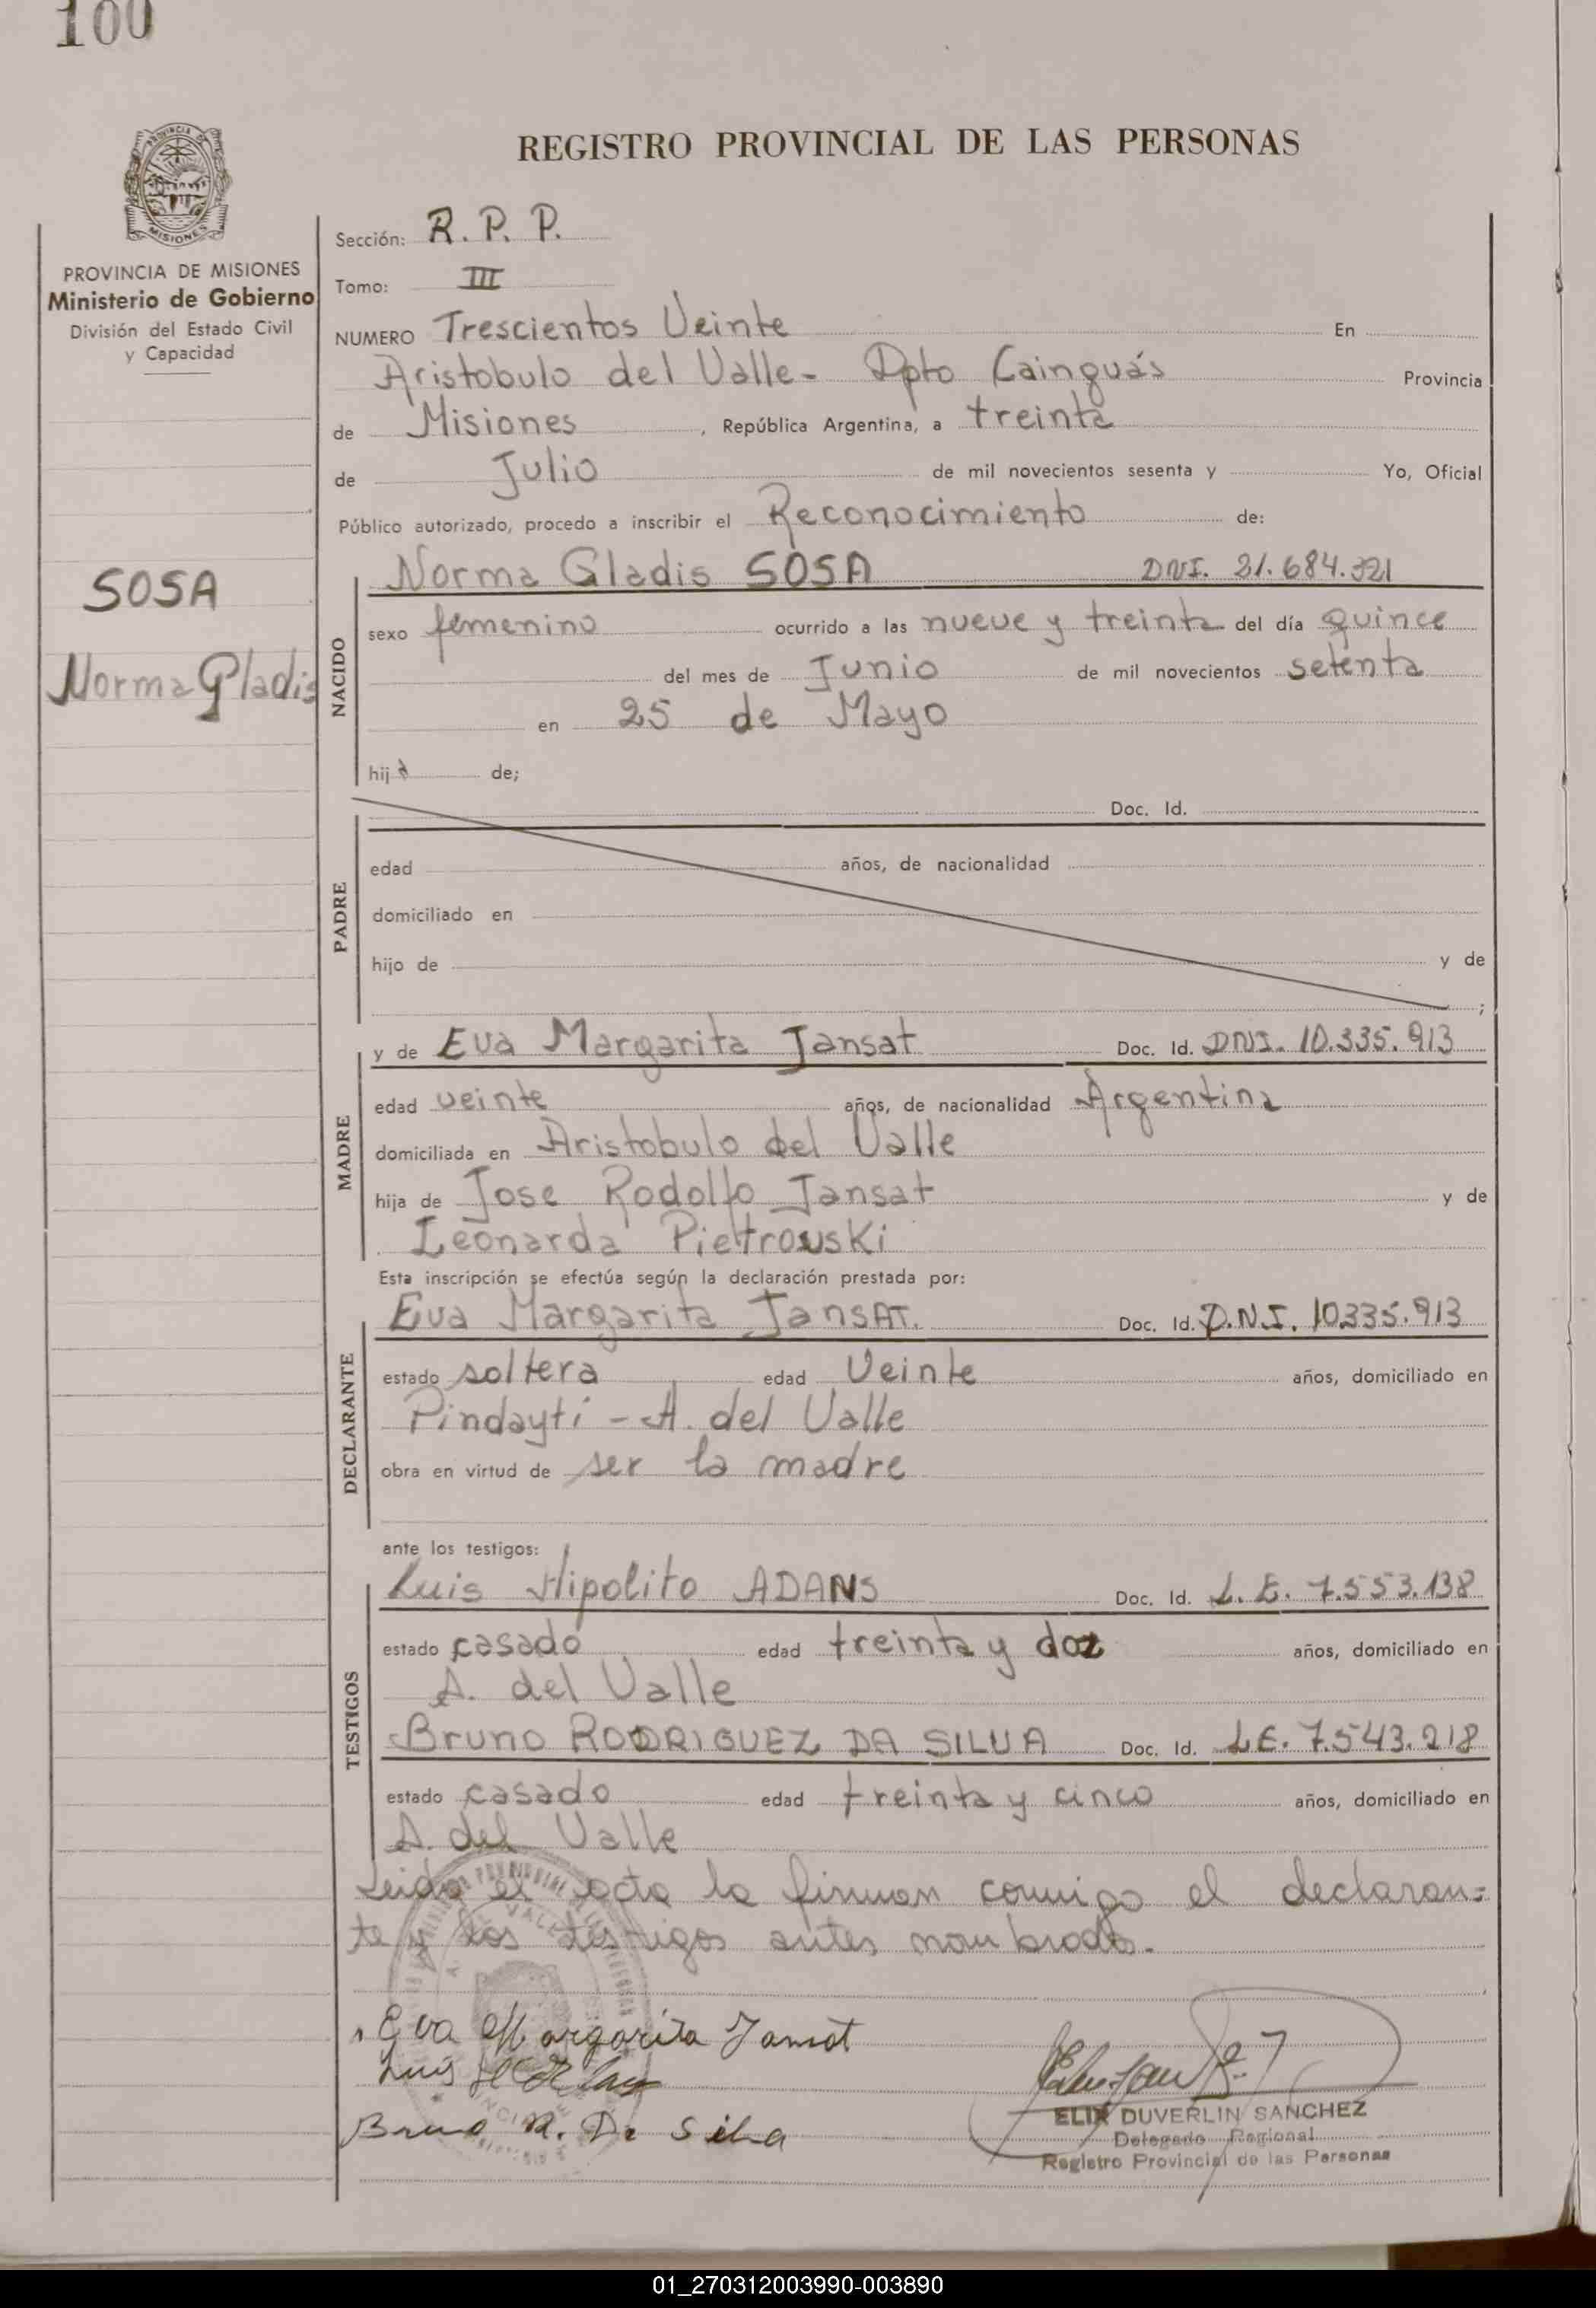 100
REGISTRO PROVINCIAL DE LAS PERSONAS
PROVINCIA DE MISIONES
Ministerio de Gobierno
División del Estado Civil
y Capacidad
SOSA
Norma Gladis
Sección: R. P. P.
Tomo: III
NUMERO Trescientos Veinte En
Aristobulo del Valle - Dpto Cainguás Provincia
de Misiones, República Argentina, a treinta
de Julio de mil novecientos sesenta y Yo, Oficial
Público autorizado, procedo a inscribir el Reconocimiento de:
Norma Gladis SOSA DNI. 21.684.321
NACIDO
sexo femenino ocurrido a las nueve y treinta del día quince
del mes de Junio de mil novecientos setenta
en 25 de Mayo
hija de;
Doc. Id.
PADRE
edad años, de nacionalidad
domiciliado en
hijo de y de
;
MADRE
y de Eva Margarita Jansat Doc. Id. DNI. 10.335.913
edad veinte años, de nacionalidad Argentina
domiciliada en Aristobulo del Valle
hija de Jose Rodolfo Jansat y de
Leonarda Pietrouski
Esta inscripción se efectúa según la declaración prestada por:
DECLARANTE
Eva Margarita JansAT. Doc. Id. D.N.I. 10335.913
estado soltera edad Veinte años, domiciliado en
Pindayti - A. del Valle
obra en virtud de ser la madre
ante los testigos:
TESTIGOS
Luis Hipolito ADANS Doc. Id. L. E. 7.553.138
estado casado edad treinta y doz años, domiciliado en
A. del Valle
Bruno RODRIGUEZ DA SILVA Doc. Id. L.E. 7.543.218
estado casado edad treinta y cinco años, domiciliado en
A. del Valle
Leida el acta la firman conmigo el declaran=
te y los testigos antes nombrados.
Eva Margarita Jansat
Luis
Bruno R. Da Silva
ELIX DUVERLIN SANCHEZ
Delegado Regional
Registro Provincial de las Personas
01_270312003990-003890